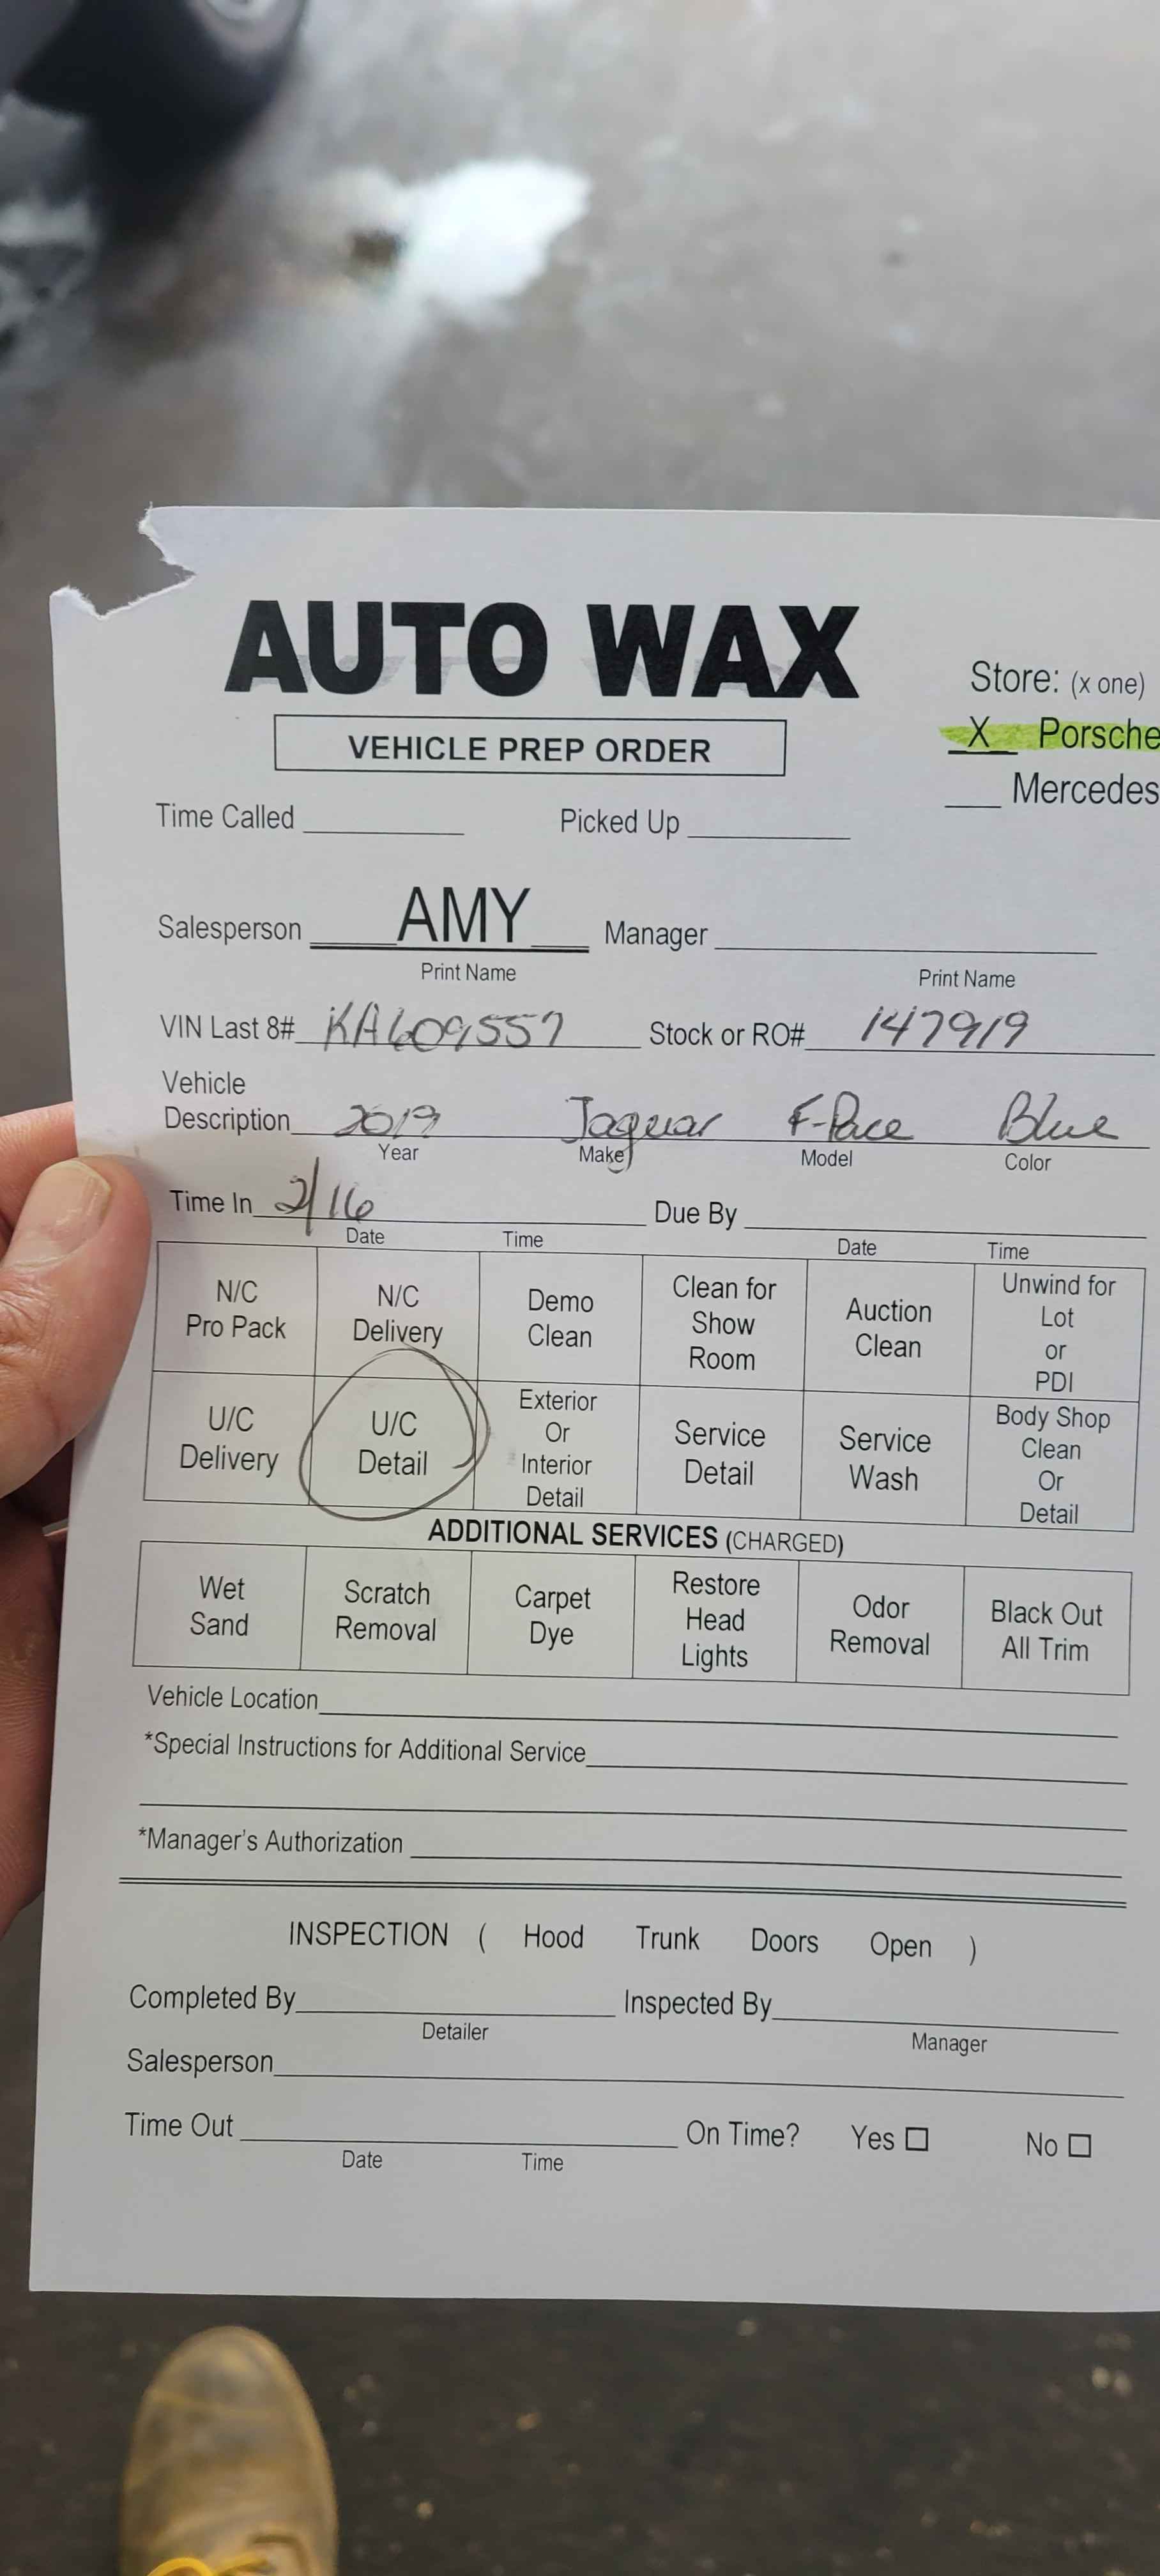 AUTO WAX
Store: (x one)
VEHICLE PREP ORDER
X Porsche
___ Mercedes
Time Called ________ Picked Up ________
Salesperson AMY Manager ________
Print Name Print Name
VIN Last 8# KA609557 Stock or RO# 147919
Vehicle
Description 2019 Jaguar F-Pace Blue
Year Make Model Color
Time In 2/16 Due By ________
Date Time Date Time
N/C Pro Pack
N/C Delivery
Demo Clean
Clean for Show Room
Auction Clean
Unwind for Lot or PDI
U/C Delivery
U/C Detail
Exterior Or Interior Detail
Service Detail
Service Wash
Body Shop Clean Or Detail
ADDITIONAL SERVICES (CHARGED)
Wet Sand
Scratch Removal
Carpet Dye
Restore Head Lights
Odor Removal
Black Out All Trim
Vehicle Location
*Special Instructions for Additional Service
*Manager's Authorization
INSPECTION ( Hood Trunk Doors Open )
Completed By ________ Inspected By ________
Detailer Manager
Salesperson
Time Out ________ On Time? Yes ☐ No ☐
Date Time